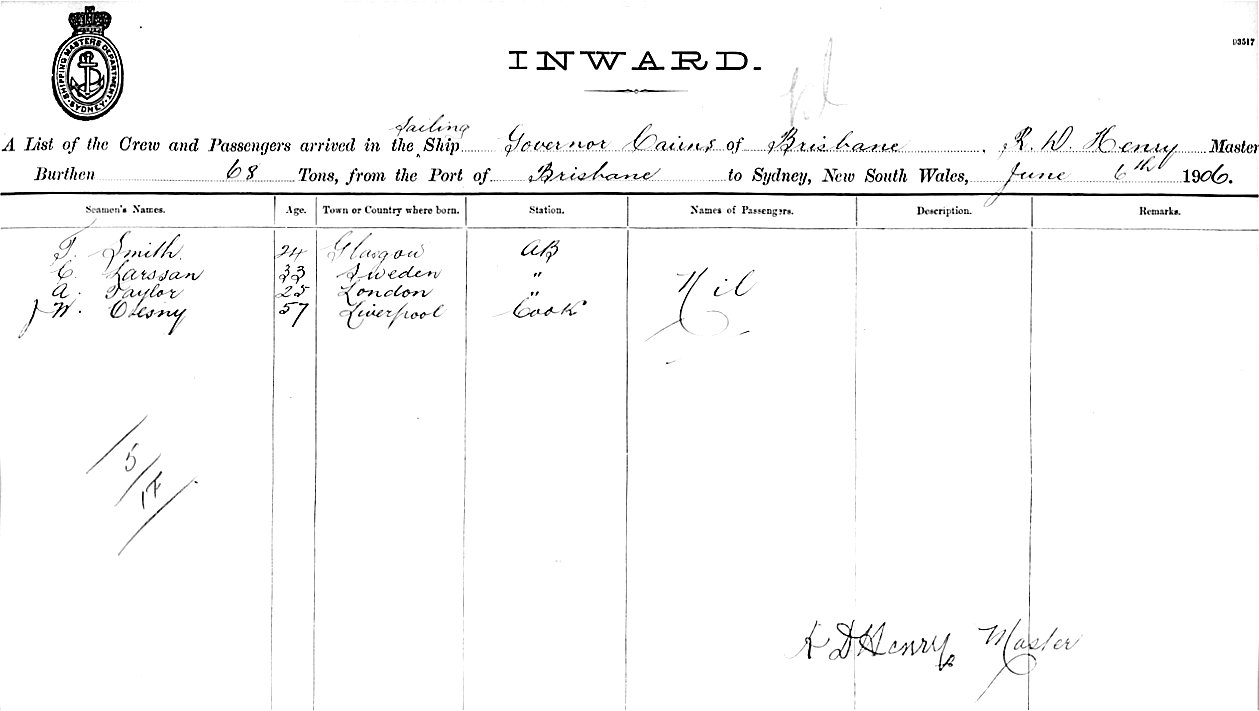 SHIPPING MASTERS DEPARTMENT
SYDNEY
INWARD.
03517
Sailing
A List of the Crew and Passengers arrived in the Ship Governor Cairns of Brisbane. R. D. Henry Master
Burthen 68 Tons, from the Port of Brisbane to Sydney, New South Wales, June 6th 1906.
Seamen's Names. Age. Town or Country where born. Station. Names of Passengers. Description. Remarks.
T. Smith. 24 Glasgow AB
C. Larssan 33 Sweden "
A. Taylor 25 London "
W. Olesny 57 Liverpool Cook
Nil
5
R D Henry Master